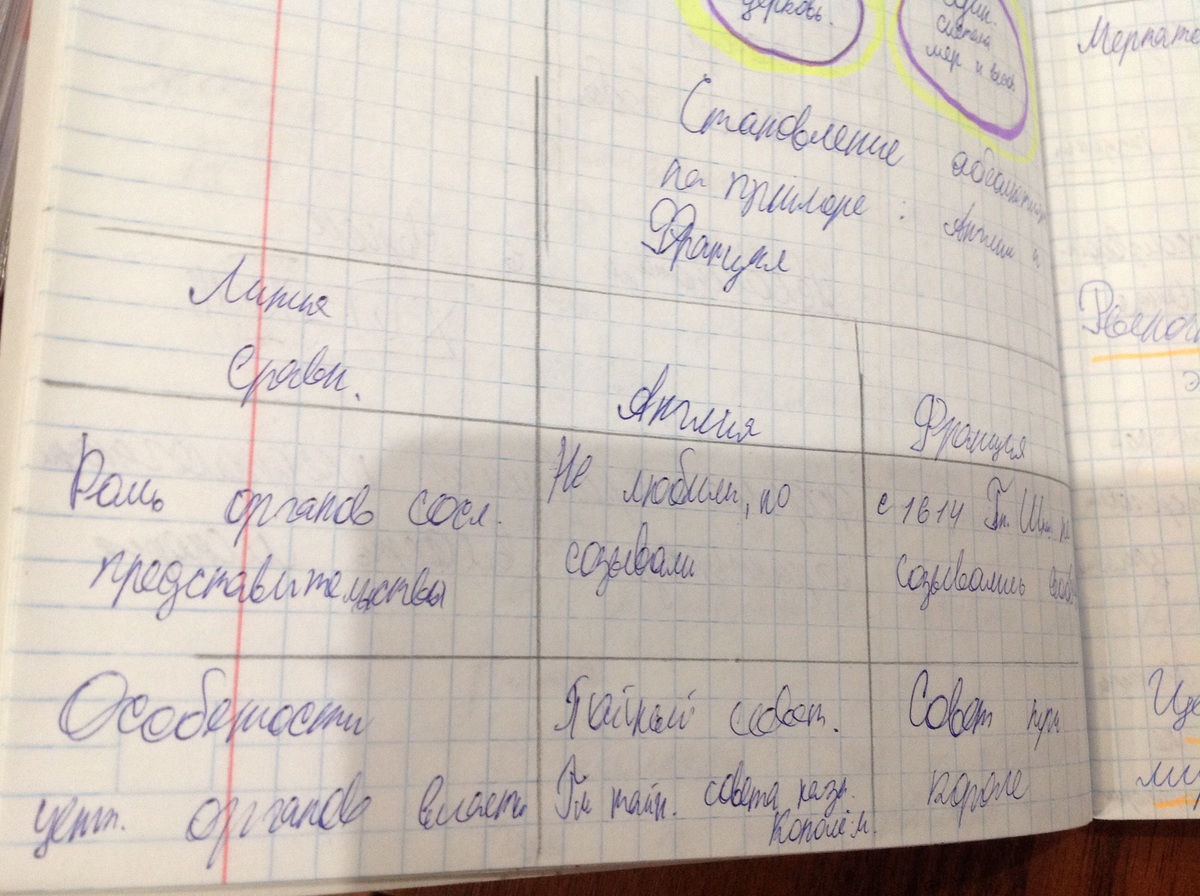 церковь.
един.
система
мер и весов
Становление абсолютизма
на примере: Англии и
Франция
Линия
сравн.
Англия
Франция
Роль органов сосл.
представительства
Не любили, но
созывали
с 1614 Ген. Шт. не
созывались
Особености
цент. органов власти
Тайный совет.
Гл. тайн. совета назн.
Королём.
Совет при
короле